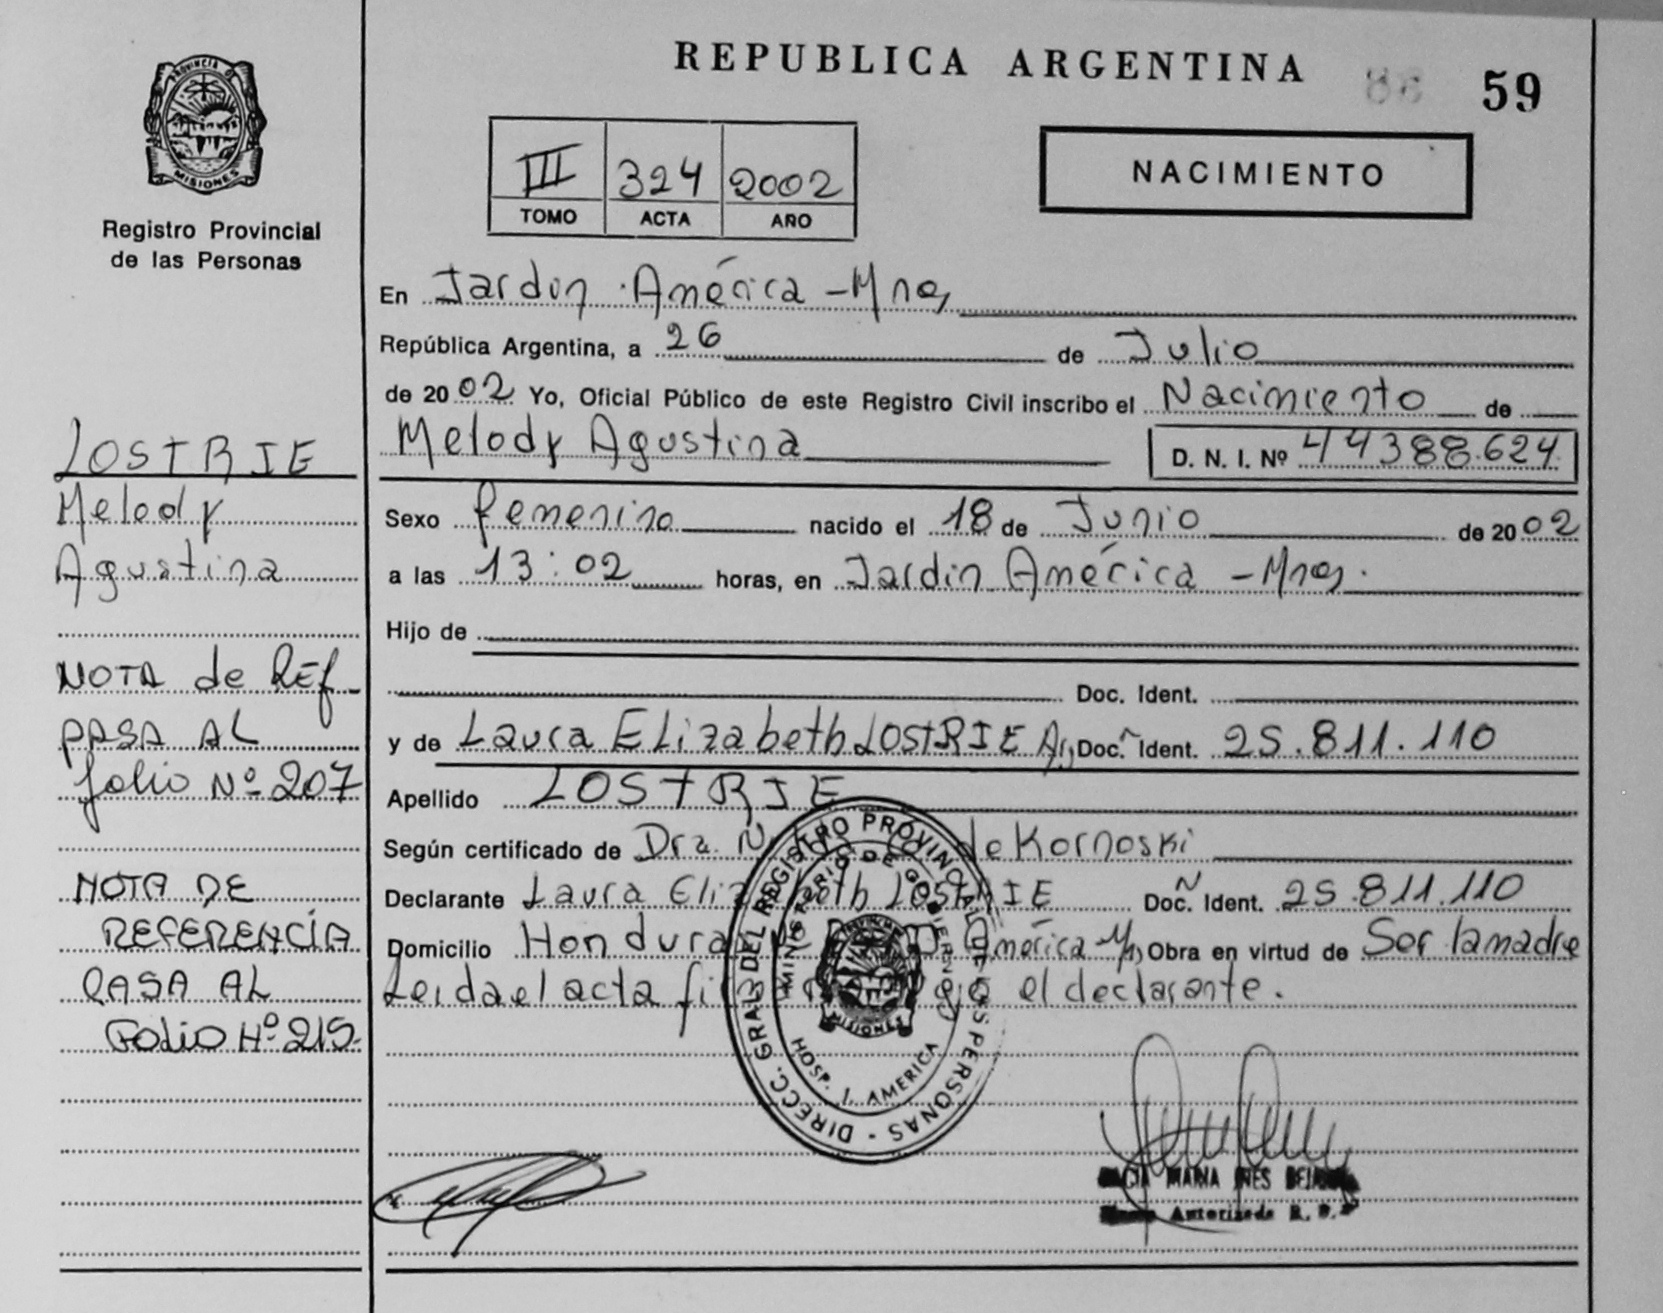 PROVINCIA DE
MISIONES
Registro Provincial
de las Personas
REPUBLICA ARGENTINA
86 59
III 324 2002
TOMO ACTA AÑO
NACIMIENTO
En Jardin América - Mnes
República Argentina, a 26 de Julio
de 2002 Yo, Oficial Público de este Registro Civil inscribo el Nacimiento de
Melody Agustina D. N. I. Nº 44388.624
Sexo femenino nacido el 18 de Junio de 2002
a las 13:02 horas, en Jardin América - Mnes.
Hijo de
Doc. Ident.
y de Laura ELizabeth LOSTRIE Ar, Doc. Ident. 25.811.110
Apellido LOSTRIE
Según certificado de Dra. de Kornoski
Declarante Laura Elizabeth LOSTRIE Doc. Ident. 25.811.110
Domicilio Honduras América Obra en virtud de Ser la madre
Leida el acta el declarante.
LOSTRIE
Melody
Agustina
NOTA de REF
PASA AL
folio Nº 207
NOTA DE
REFERENCÍA
PASA AL
FOLIO Nº 215.
DIRECC. GRAL. DEL REGISTRO PROVINCIAL DE LAS PERSONAS
MINISTERIO DE GOBIERNO
HOSP. J. AMERICA
MISIONES
MARIA INES
Autorizada R. P.